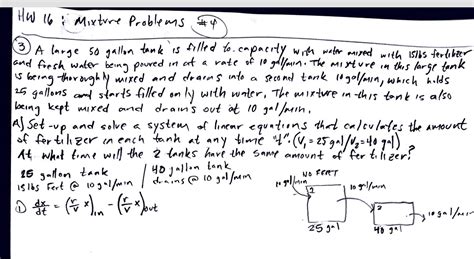 HW 16: Mixture Problems #4
③ A large 50 gallon tank is filled to capacity with water mixed with 15lbs fertilizer
and fresh water being poured in at a rate of 10 gal/min. The mixture in this large tank
is being thoroughly mixed and drains into a second tank 10gal/min, which holds
25 gallons and starts filled only with water. The mixture in this tank is also
being kept mixed and drains out at 10 gal/min.
A) Set-up and solve a system of linear equations that calculates the amount
of fertilizer in each tank at any time "t". (V₁=25gal/V₂=40gal)
At what time will the 2 tanks have the same amount of fertilizer?
25 gallon tank / 40 gallon tank NO FERT
15lbs Fert @ 10gal/min / drains @ 10 gal/min
10gal/min 1 10gal/min
2 10gal/min
① dx/dt = (r/v x)in - (r/v x)out
25 gal 40 gal